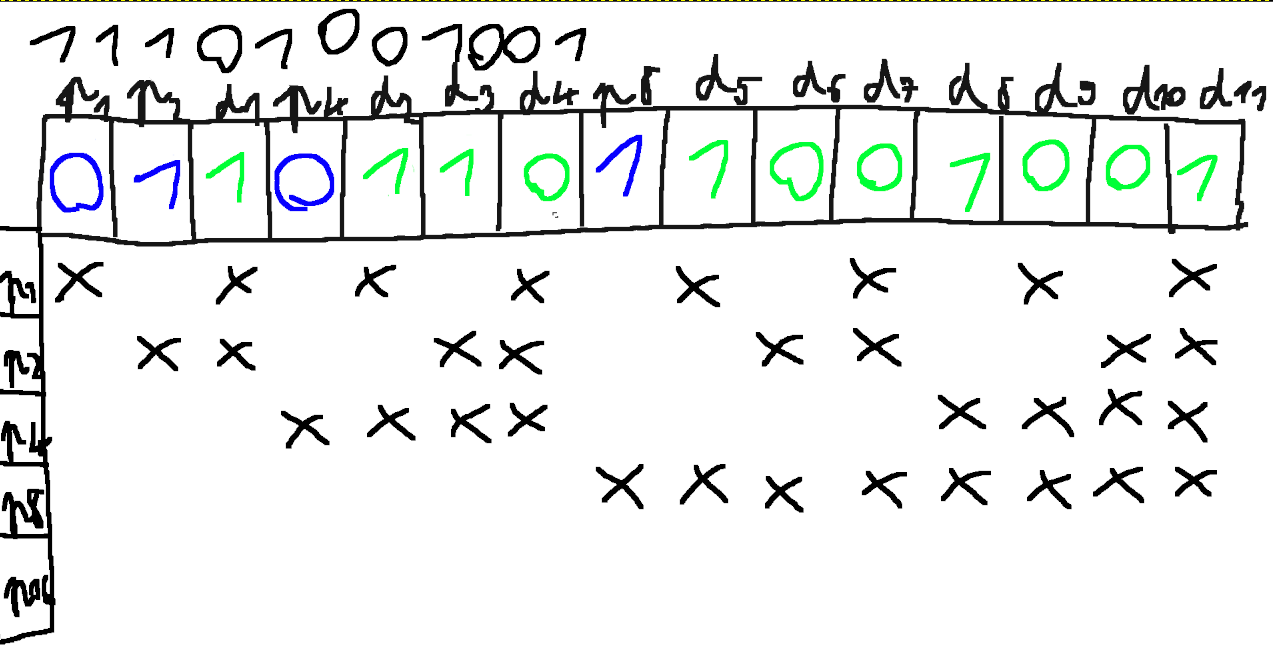 11101001001
p1 p2 d1 p4 d2 d3 d4 p8 d5 d6 d7 d8 d9 d10 d11
0 1 1 0 1 1 0 1 1 0 0 1 0 0 1
p1 x x x x x x x x
p2 x x x x x x x x
p4 x x x x x x x x
p8 x x x x x x x x